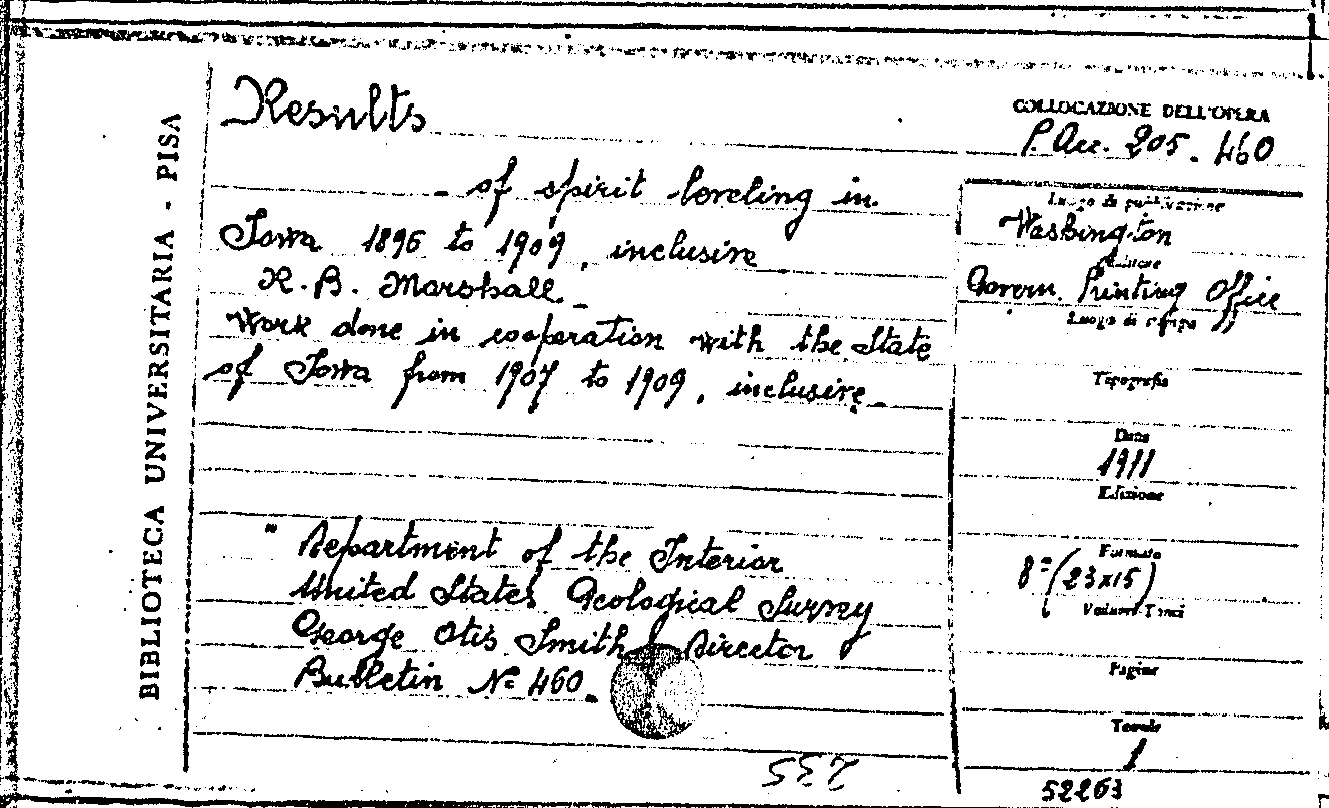 BIBLIOTECA UNIVERSITARIA - PISA
Results
of spirit leveling in
Iowa 1896 to 1909, inclusive
R. B. Marshall.
Work done in cooperation with the State
of Iowa from 1907 to 1909, inclusive.
" Department of the Interior
United States Geological Survey
George Otis Smith Director
Bulletin Nº 460.
COLLOCAZIONE DELL'OPERA
P. Acc. 205. 460
Luogo di pubblicazione
Washington
Editore
Govern. Printing Office
Luogo di stampa
Tipografia
Data
1911
Edizione
Formato
8º (23x15)
Volumi Tomi
Pagine
Tavole
1
52263